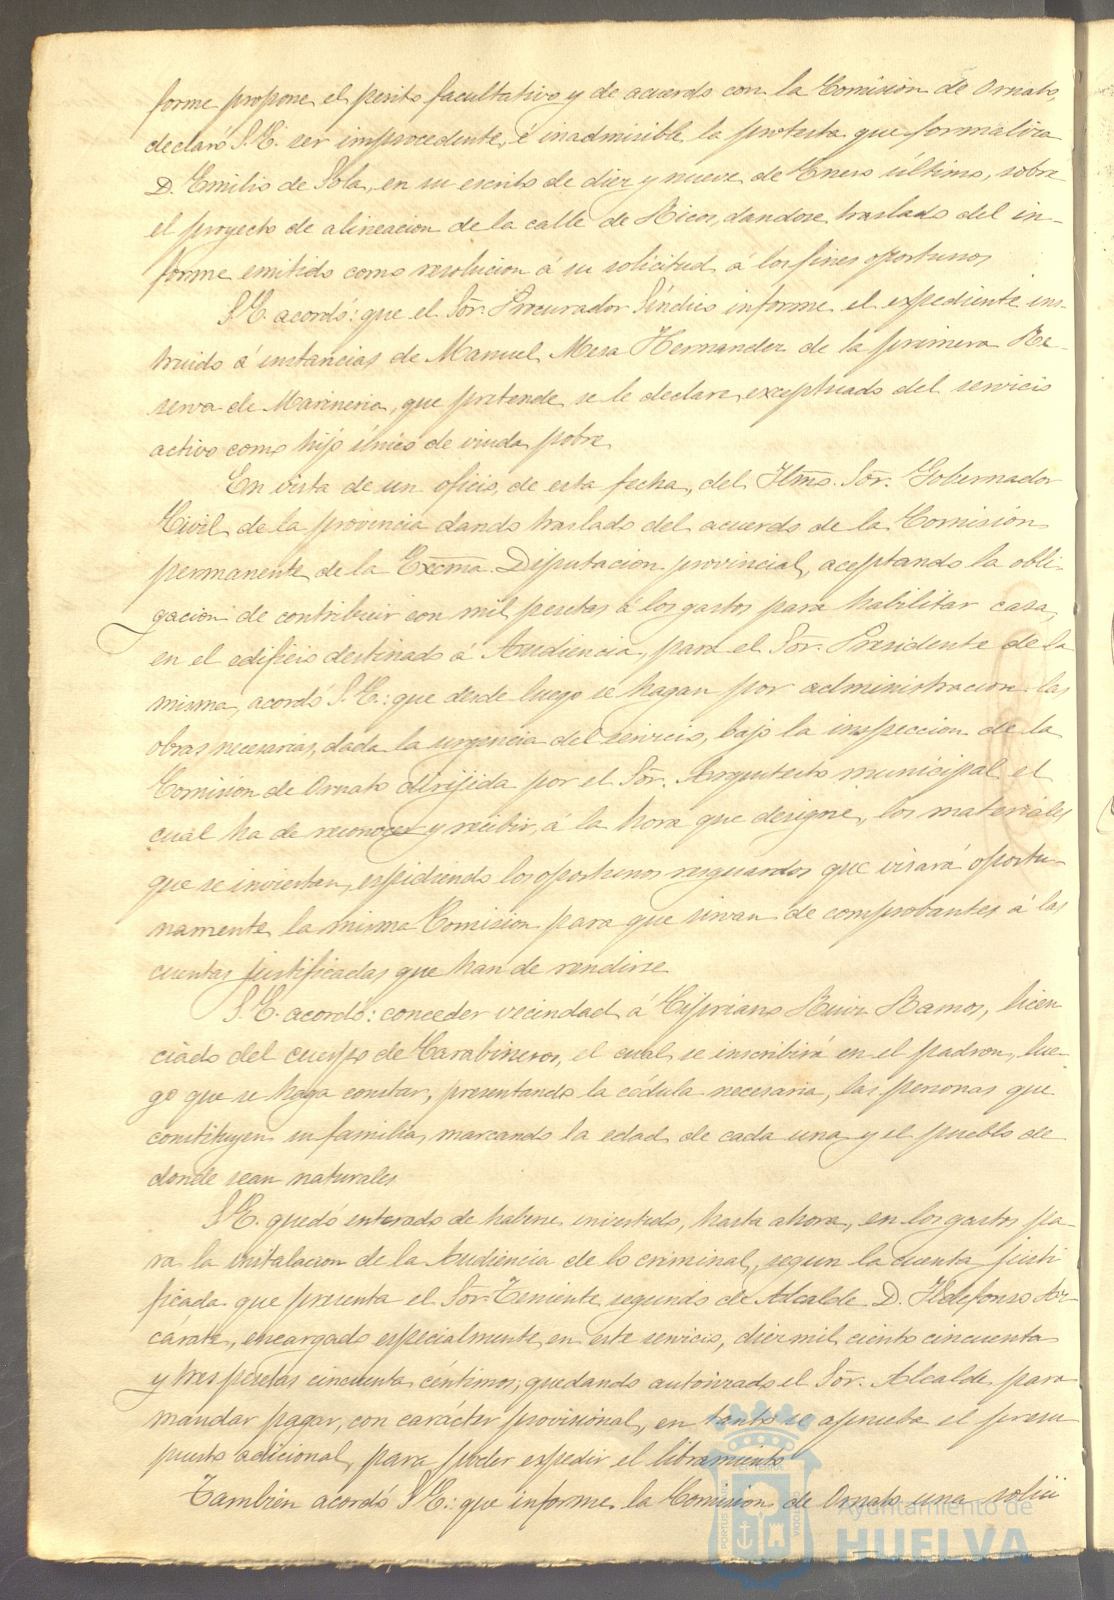 forme propone el perito facultativo y de acuerdo con la Comision de Ornato,
declaró S.E. ser improcedente é inadmisible la protesta que formaliza
D. Emilio de Sola, en su escrito de diez y nueve de Enero último, sobre
el proyecto de alineacion de la calle de Ricos, dandose traslado del in-
forme emitido como resolucion á su solicitud á los fines oportunos
S.E. acordó: que el Sor. Procurador Síndico informe el expediente ins-
truido á instancias de Manuel Mesa Hernandez de la primera Re-
serva de Marineria, que pretende se le declare exceptuado del servicio
activo como hijo único de viuda pobre
En vista de un oficio, de esta fecha, del Iltmo. Sor. Gobernador
Civil de la provincia dando traslado del acuerdo de la Comision
permanente de la Excma. Diputacion provincial, aceptando la obli-
gacion de contribuir con mil pesetas á los gastos para habilitar casa,
en el edificio destinado á Audiencia, para el Sor. Presidente de la
misma, acordó S.E.: que desde luego se hagan por administracion las
obras necesarias, dada la urgencia del servicio, bajo la inspeccion de la
Comision de Ornato dirijida por el Sor. Arquitecto municipal el
cual ha de reconocer y recibir, á la hora que designe, los materiales
que se inviertan, expidiendo los oportunos resguardos que visará oportu-
namente la misma Comision para que sirvan de comprobantes á las
cuentas justificadas que han de rendirse
S.E. acordó: conceder vecindad á Cipriano Ruiz Ramos, licen
ciado del cuerpo de Carabineros, el cual se inscribirá en el padron, lue-
go que se haga constar, presentando la cédula necesaria, las personas que
constituyen su familia, marcando la edad de cada una y el pueblo de
donde sean naturales
S.E. quedó enterado de haberse invertido, hasta ahora, en los gastos pa-
ra la instalacion de la Audiencia de lo criminal, segun la cuenta justi
ficada que presenta el Sor. Teniente segundo de Alcalde D. Ildefonso Az-
cárate, encargado especialmente en este servicio, diez mil ciento cincuenta
y tres pesetas cincuenta céntimos; quedando autorizado el Sor. Alcalde para
mandar pagar, con carácter provisional, en tanto se aprueba el presu
puesto adicional, para poder expedir el libramiento
Tambien acordó S.E.: que informe la Comision de Ornato una solici
Ayuntamiento de
HUELVA